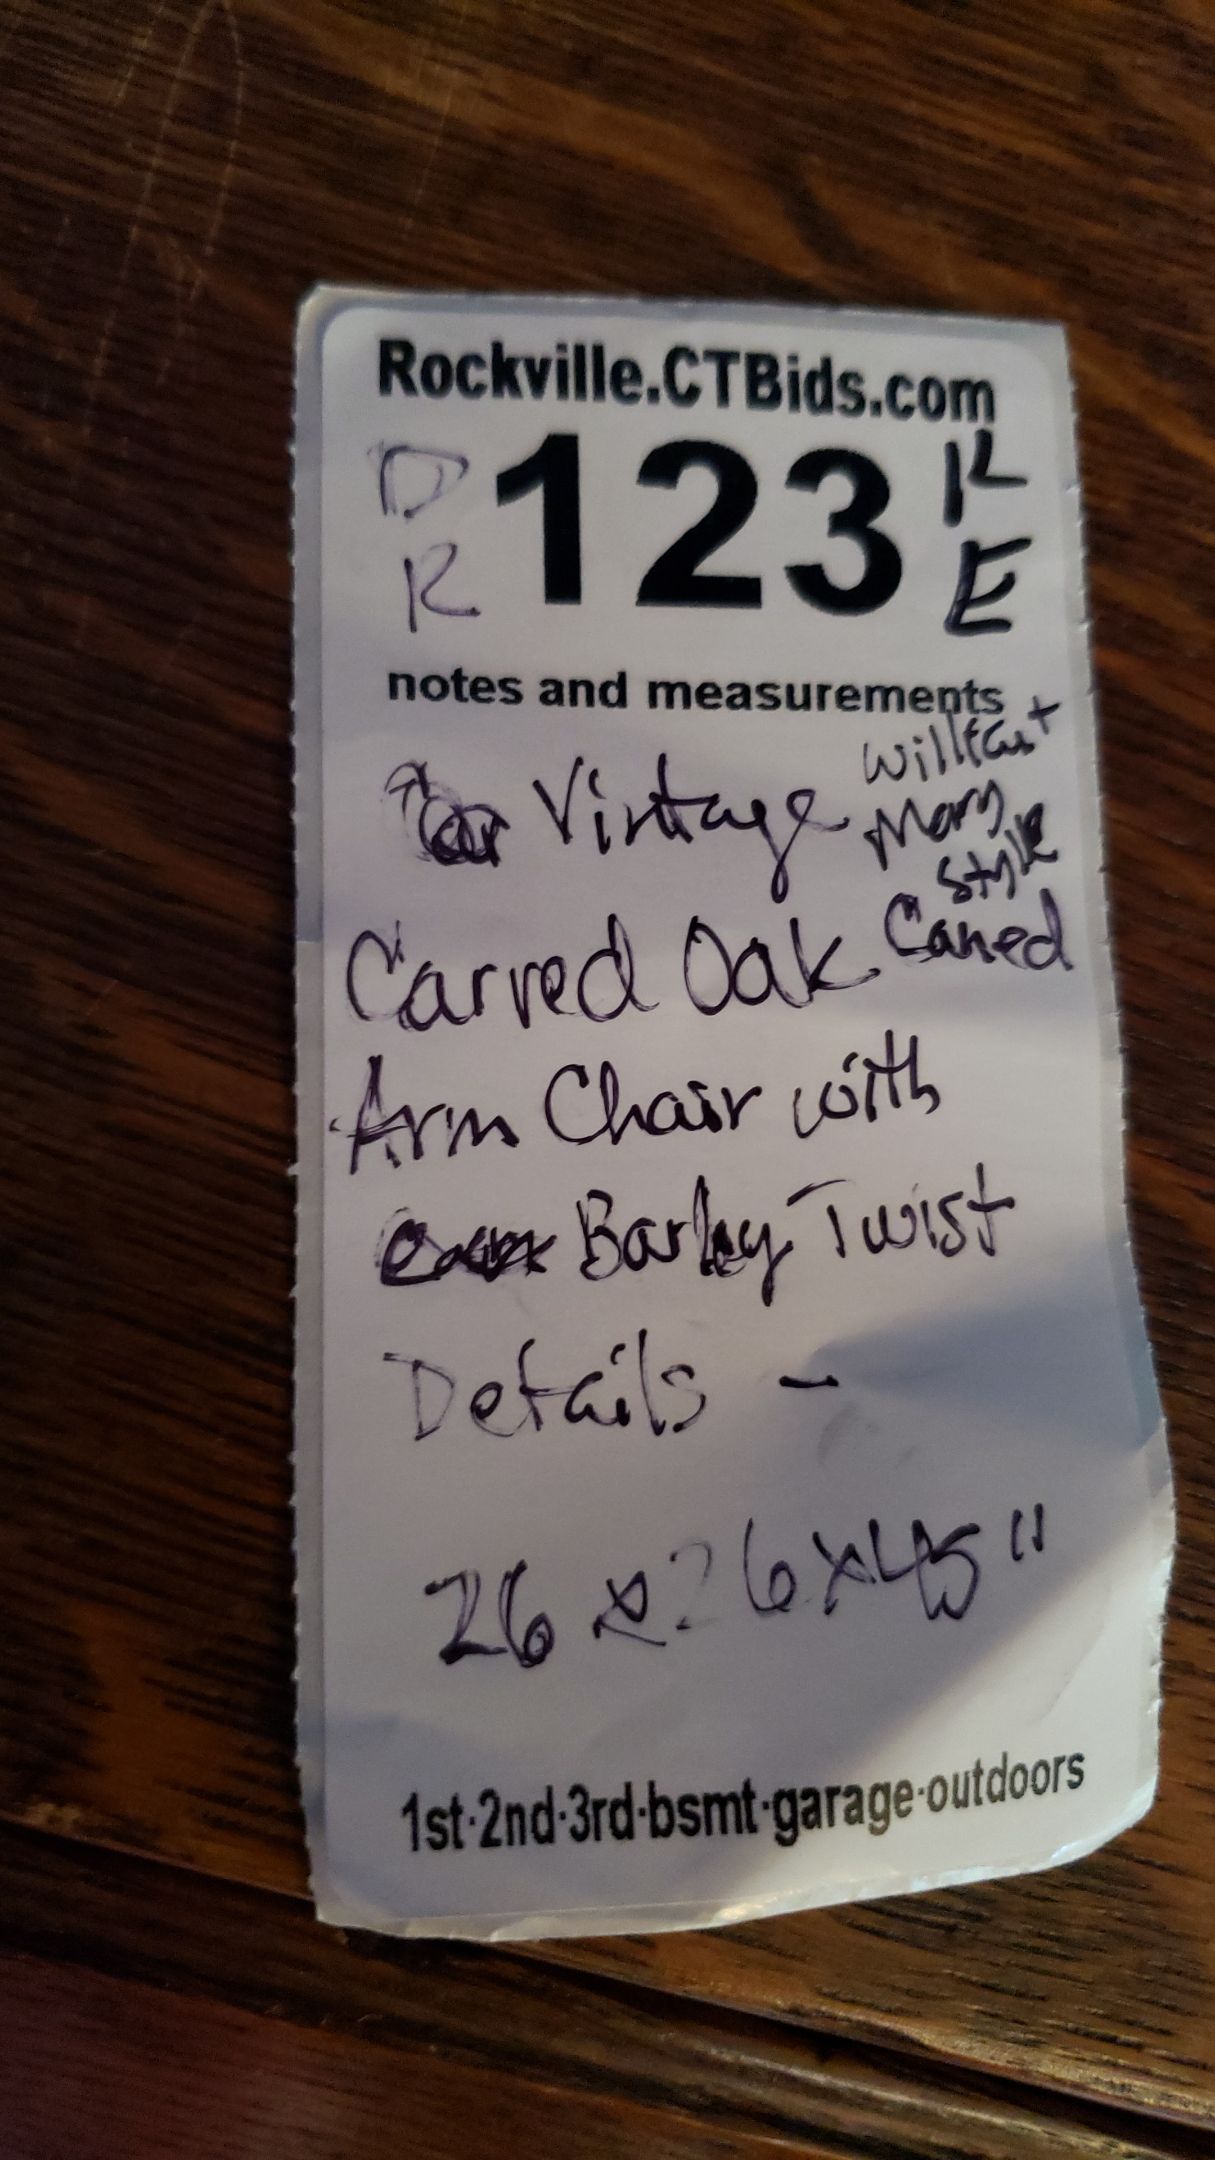 Rockville.CTBids.com
D R 123 K E
notes and measurements
Vintage William + Mary Style
Carved Oak Caned
Arm Chair with
Barley Twist
Details -
26 x 26 x 45"
1st·2nd·3rd·bsmt·garage·outdoors